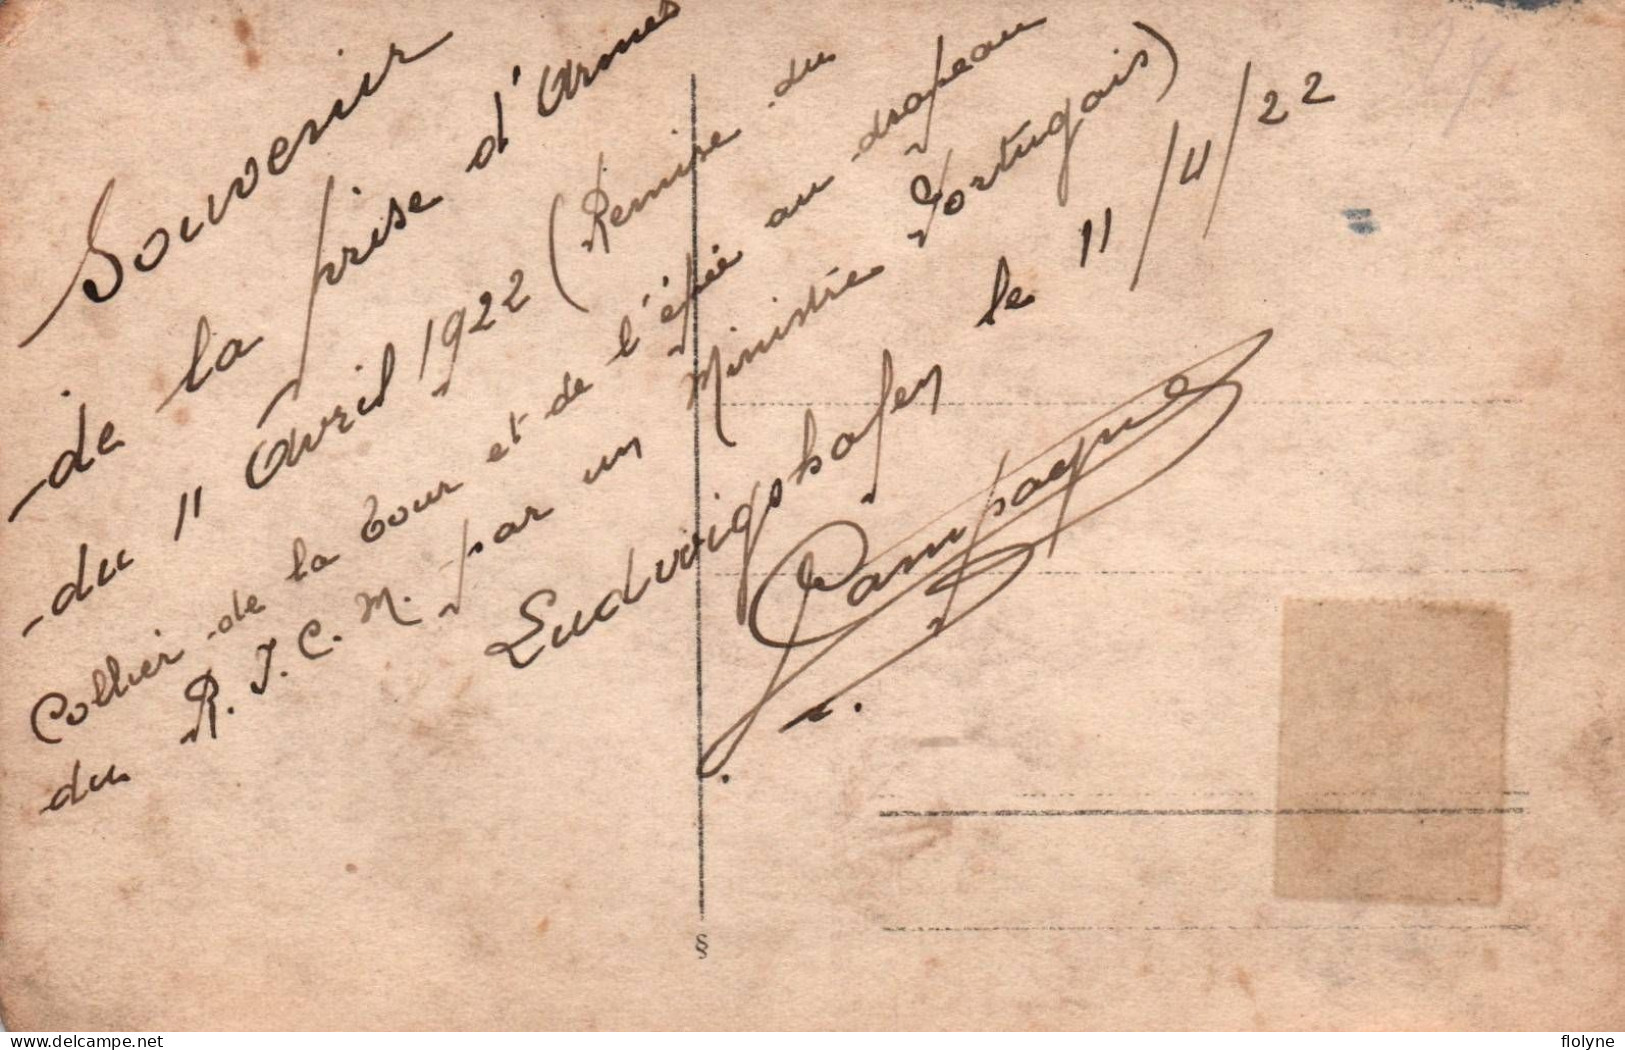 Souvenir
de la prise d'Armes
du 11 Avril 1922 (Remise du
Collier de la Tour et de l'épée au drapeau
du R.I.C.M. par un Ministre Portugais)
Ludwigshafen le 11/4/22
Campagne
§
flolyne